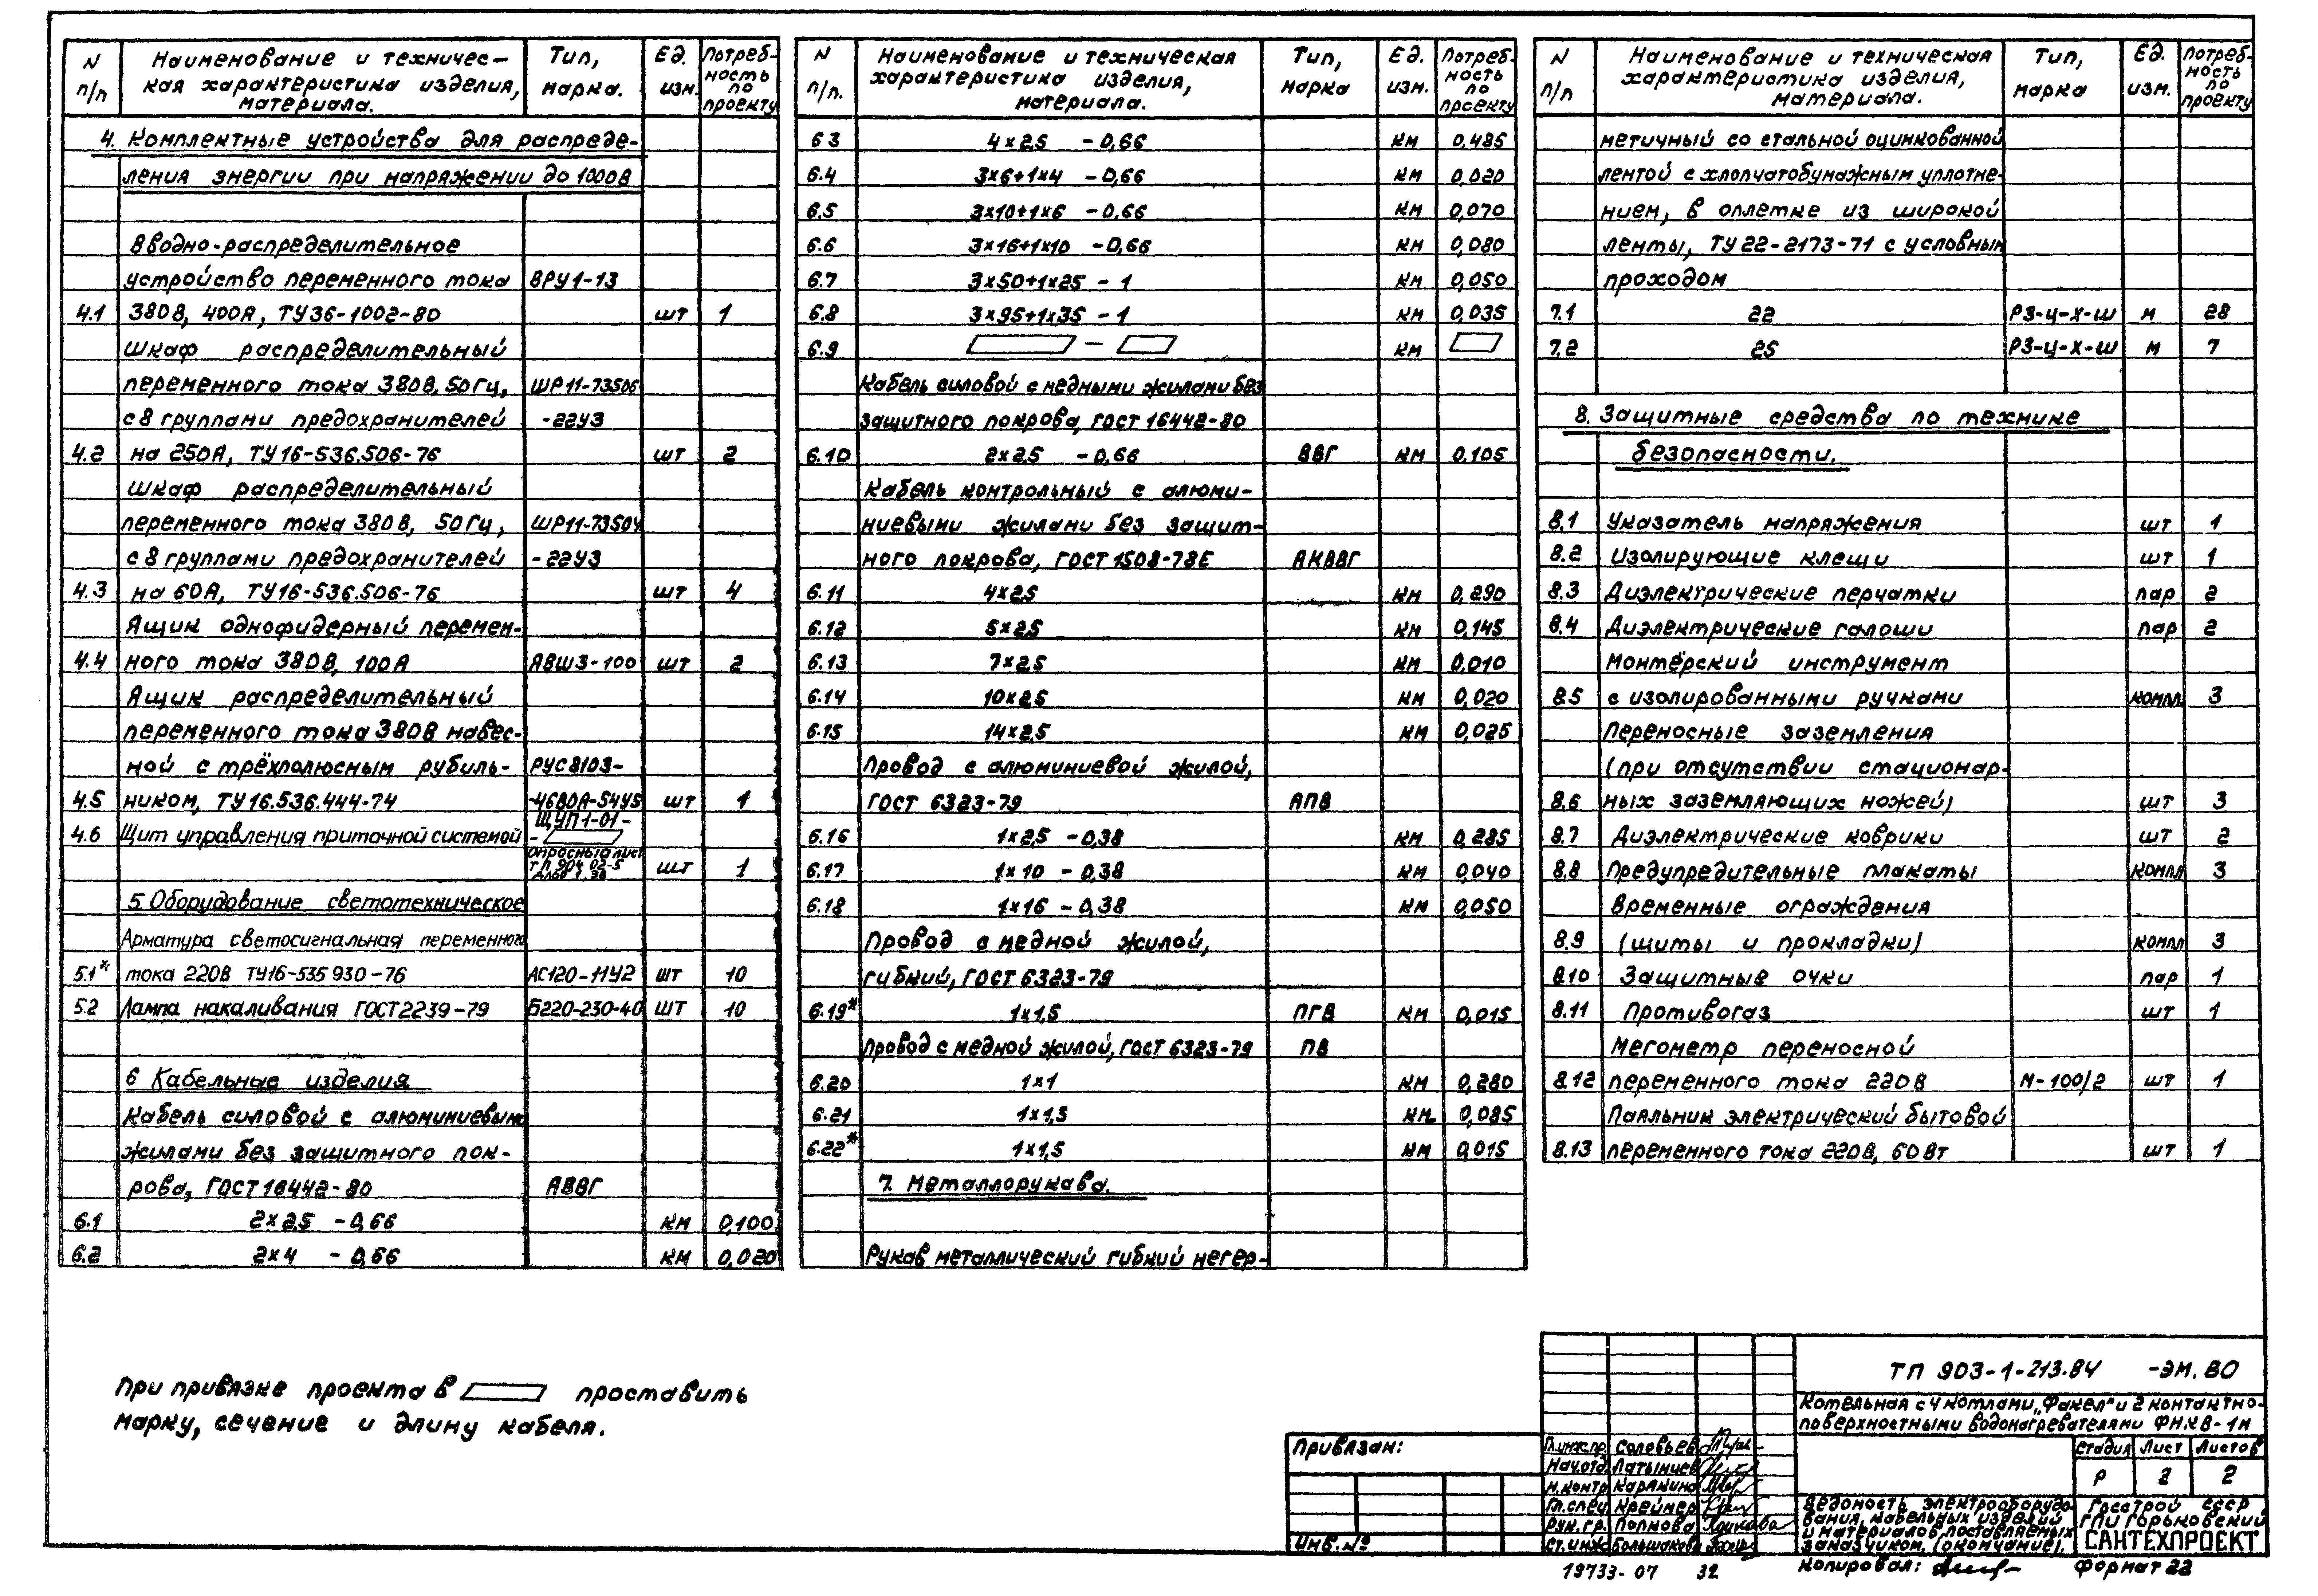 N п/п Наименование и техничес- Тип, Ед. Потреб-
кая характеристика изделия, марка. изм. ность по
материала. проекту
4. Комплектные устройства для распреде-
ления энергии при напряжении до 1000В
Вводно-распределительное
устройство переменного тока ВРУ1-13
4.1 380В, 400А, ТУ36-1002-80 шт 1
Шкаф распределительный
переменного тока 380В, 50Гц, ШР11-73506
с 8 группами предохранителей -22У3
4.2 на 250А, ТУ16-536.506-76 шт 2
Шкаф распределительный
переменного тока 380В, 50Гц, ШР11-73504
с 8 группами предохранителей -22У3
4.3 на 60А, ТУ16-536.506-76 шт 4
Ящик однофидерный перемен-
4.4 ного тока 380В, 100А ЯВШ3-100 шт 2
Ящик распределительный
переменного тока 380В навес-
ной с трёхполюсным рубиль- РУС8103-
4.5 ником, ТУ16.536.444-74 -46В0А-54У5 шт 1
ЩУП1-01-
4.6 Щит управления приточной системой -
опросный лист
ТП 904 02-5 шт 1
5. Оборудование светотехническое
Арматура светосигнальная переменного
5.1* тока 220В ТУ16-535 930-76 АС120-11У2 шт 10
5.2 Лампа накаливания ГОСТ2239-79 Б220-230-40 шт 10
6 Кабельные изделия
Кабель силовой с алюминиевым
жилами без защитного пок-
рова, ГОСТ16442-80 АВВГ
6.1 2×2,5 -0,66 км 0,100
6.2 2×4 -0,66 км 0,020
N п/п. Наименование и техническая Тип, Ед. Потреб-
характеристика изделия, марка изм. ность по
материала. проекту
6 3 4×2,5 -0,66 км 0,485
6.4 3×6+1×4 -0,66 км 0,020
6.5 3×10+1×6 -0,66 км 0,070
6.6 3×16+1×10 -0,66 км 0,080
6.7 3×50+1×25 -1 км 0,050
6.8 3×95+1×35 -1 км 0,035
6.9 — км
Кабель силовой с медными жилами без
защитного покрова, ГОСТ 16442-80
6.10 2×2,5 -0,66 ВВГ км 0,105
Кабель контрольный с алюми-
ниевыми жилами без защит-
ного покрова, ГОСТ 1508-78Е АКВВГ
6.11 4×2,5 км 0,290
6.12 5×2,5 км 0,145
6.13 7×2,5 км 0,010
6.14 10×2,5 км 0,020
6.15 14×2,5 км 0,025
Провод с алюминиевой жилой,
ГОСТ 6323-79 АПВ
6.16 1×2,5 -0,38 км 0,285
6.17 1×10 -0,38 км 0,040
6.18 1×16 -0,38 км 0,050
Провод с медной жилой,
гибкий, ГОСТ 6323-79
6.19* 1×1,5 ПГВ км 0,015
Провод с медной жилой, ГОСТ 6323-79 ПВ
6.20 1×1 км 0,280
6.21 1×1,5 км 0,085
6.22* 1×1,5 км 0,015
7. Металлорукава.
Рукав металлический гибкий негер-
N п/п Наименование и техническая Тип, Ед. Потреб-
характеристика изделия, марка изм. ность по
материала. проекту
метичный со стальной оцинкованной
лентой с хлопчатобумажным уплотне-
нием, в оплетке из широкой
ленты, ТУ 22-2173-71 с условным
проходом
7.1 22 РЗ-Ц-Х-Ш м 28
7.2 25 РЗ-Ц-Х-Ш м 7
8. Защитные средства по технике
безопасности.
8.1 Указатель напряжения шт 1
8.2 Изолирующие клещи шт 1
8.3 Диэлектрические перчатки пар 2
8.4 Диэлектрические галоши пар 2
Монтёрский инструмент
8.5 с изолированными ручками компл 3
Переносные заземления
(при отсутствии стационар-
8.6 ных заземляющих ножей) шт 3
8.7 Диэлектрические коврики шт 2
8.8 Предупредительные плакаты компл 3
Временные ограждения
8.9 (щиты и прокладки) компл 3
8.10 Защитные очки пар 1
8.11 Противогаз шт 1
Мегометр переносной
8.12 переменного тока 220В М-100/2 шт 1
Паяльник электрический бытовой
8.13 переменного тока 220В, 60Вт шт 1
При привязке проекта в проставить
марку, сечение и длину кабеля.
Привязан:
Инв.№
ТП 903-1-213.84 -ЭМ.ВО
Котельная с 4 котлами „Факел" и 2 контактно-
поверхностными водонагревателями ФНКВ-1М
Гл.инж.пр. Соловьев
Нач.отд. Латынцев
Н.контр Карякина
Гл.спец Крейнер
Рук.гр. Попкова
Ст.инж Большакова
Стадия Лист Листов
Р 2 2
Ведомость электрооборудо-
вания, кабельных изделий
и материалов, поставляемых
заказчиком. (окончание).
Госстрой СССР
ГПИ Горьковский
САНТЕХПРОЕКТ
19733-07 32 Копировал: Формат 22